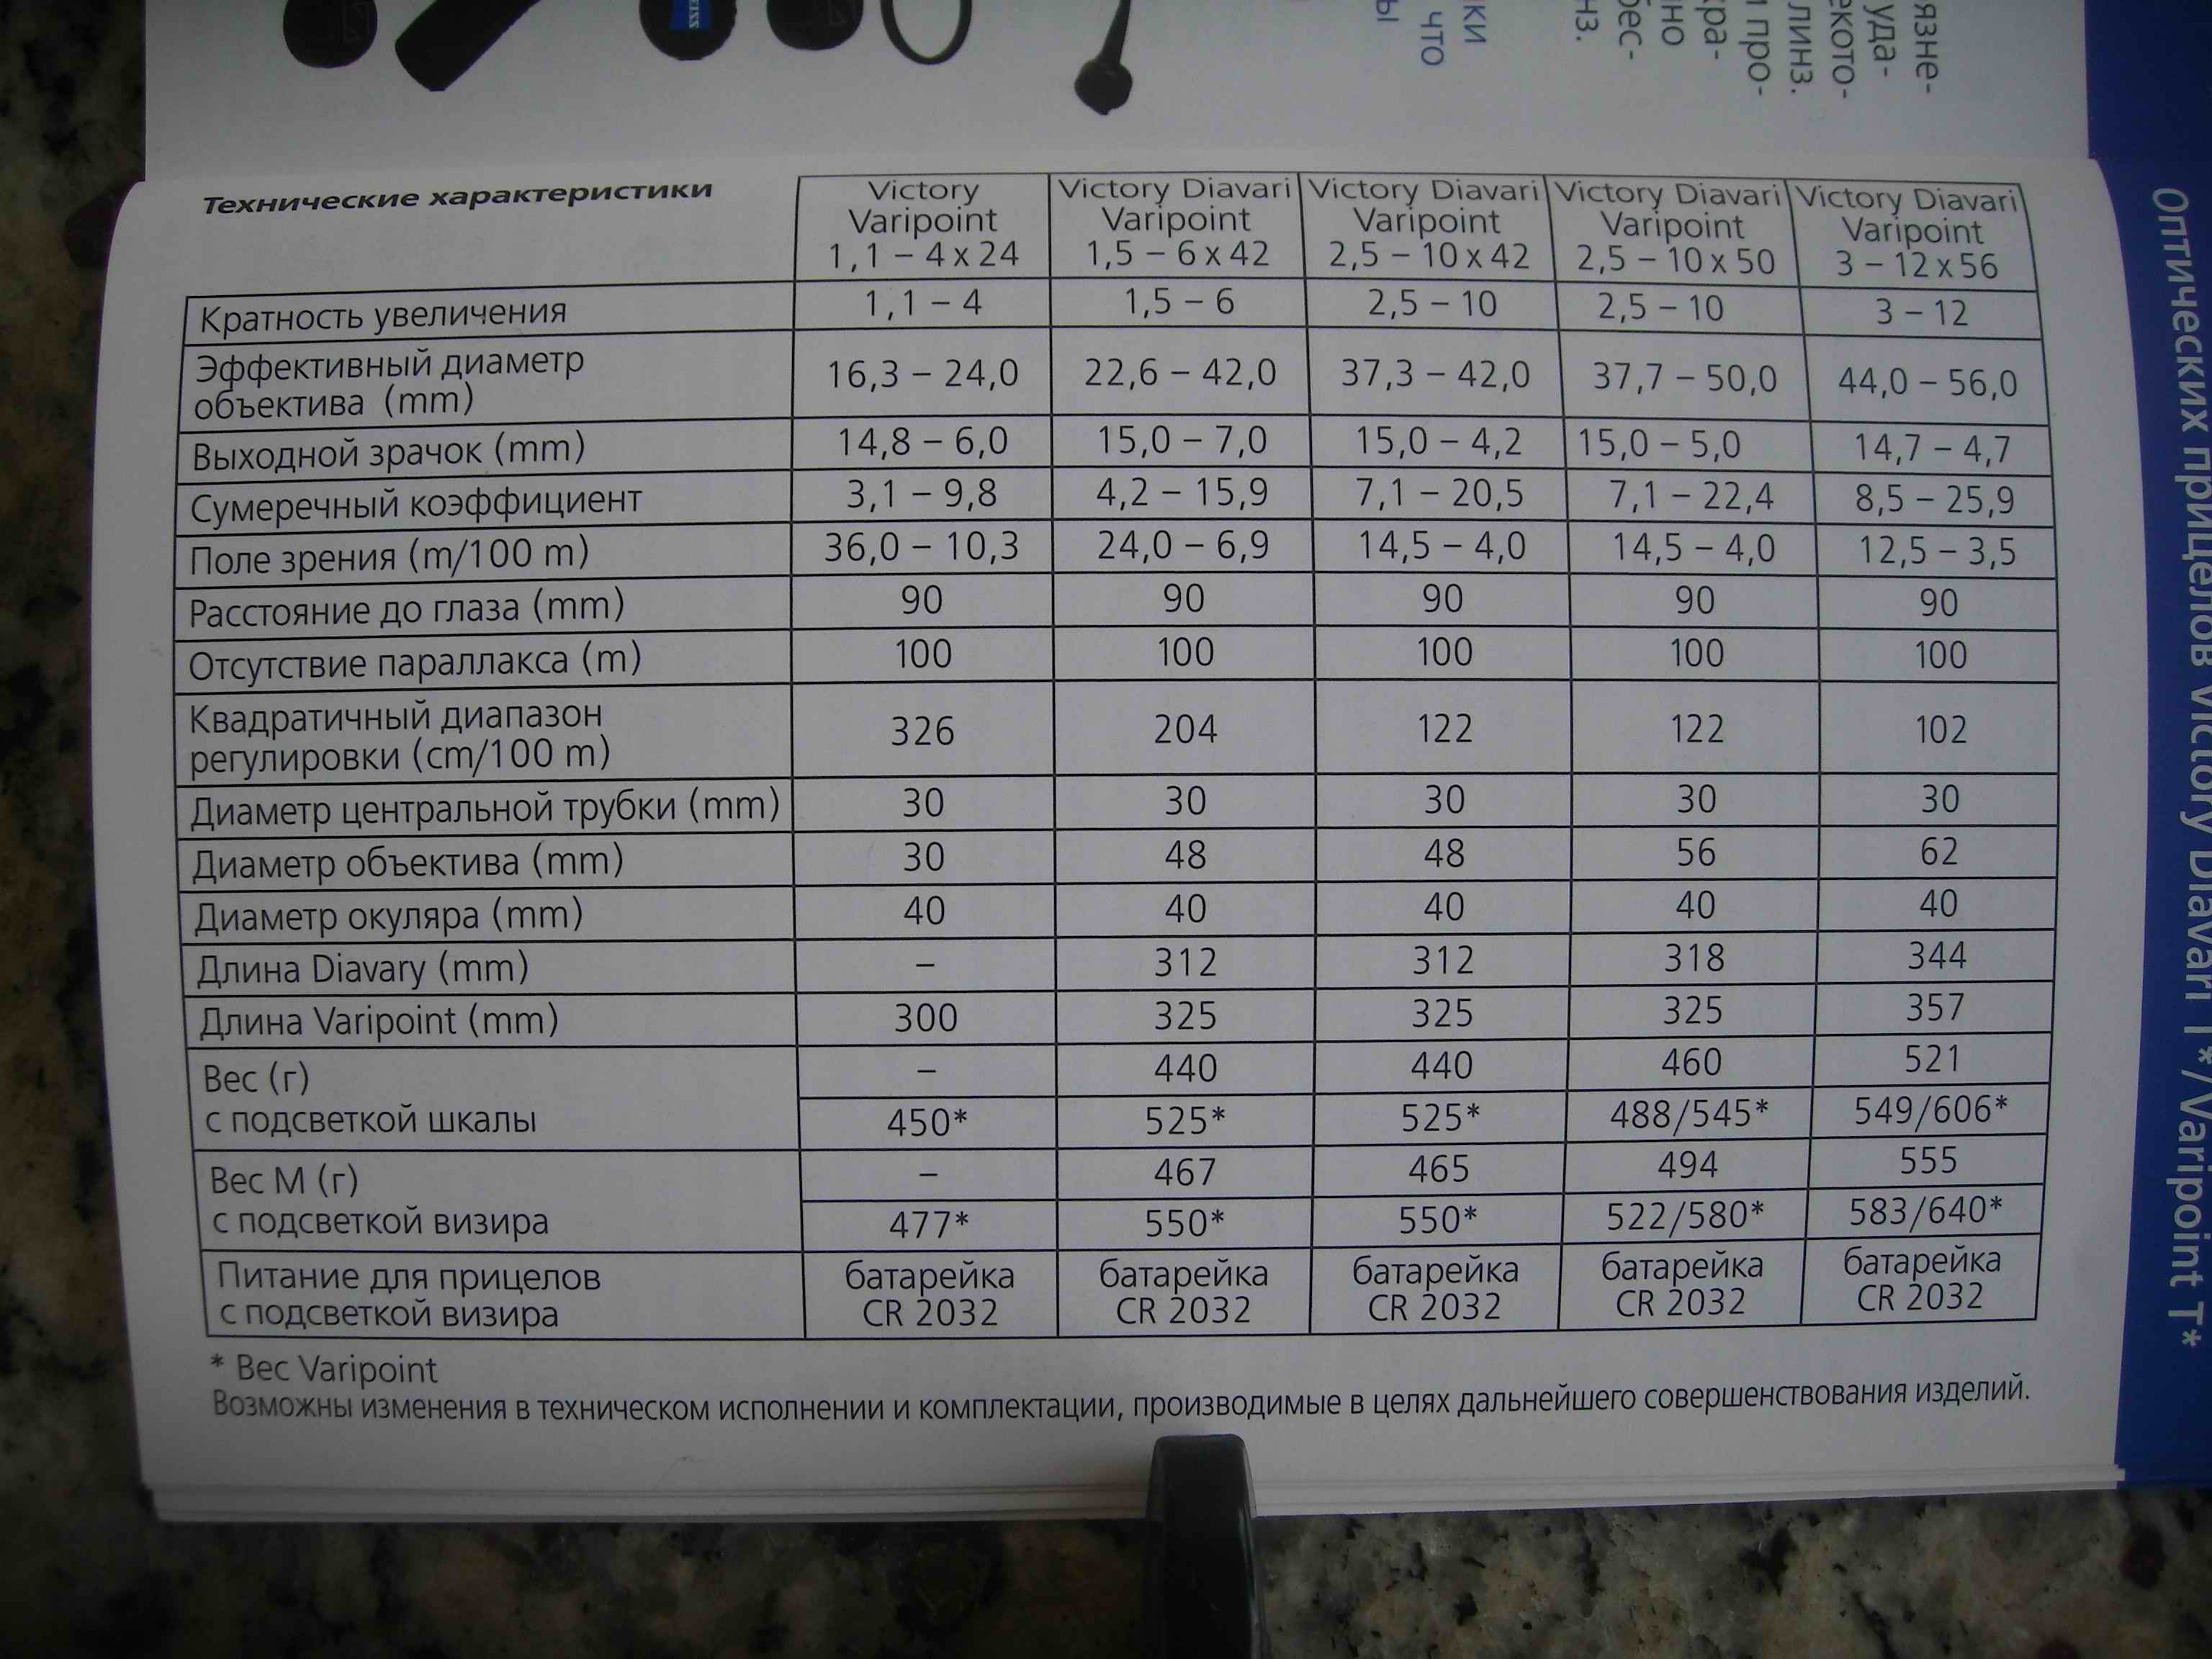 ZEISS
язне-
уда-
екото-
линз.
и про-
кра-
но
рес-
нз.
ки
что
ы
Технические характеристики
Victory Varipoint 1,1 – 4 x 24
Victory Diavari Varipoint 1,5 – 6 x 42
Victory Diavari Varipoint 2,5 – 10 x 42
Victory Diavari Varipoint 2,5 – 10 x 50
Victory Diavari Varipoint 3 – 12 x 56
Кратность увеличения 1,1 – 4 1,5 – 6 2,5 – 10 2,5 – 10 3 – 12
Эффективный диаметр
объектива (mm) 16,3 – 24,0 22,6 – 42,0 37,3 – 42,0 37,7 – 50,0 44,0 – 56,0
Выходной зрачок (mm) 14,8 – 6,0 15,0 – 7,0 15,0 – 4,2 15,0 – 5,0 14,7 – 4,7
Сумеречный коэффициент 3,1 – 9,8 4,2 – 15,9 7,1 – 20,5 7,1 – 22,4 8,5 – 25,9
Поле зрения (m/100 m) 36,0 – 10,3 24,0 – 6,9 14,5 – 4,0 14,5 – 4,0 12,5 – 3,5
Расстояние до глаза (mm) 90 90 90 90 90
Отсутствие параллакса (m) 100 100 100 100 100
Квадратичный диапазон
регулировки (cm/100 m) 326 204 122 122 102
Диаметр центральной трубки (mm) 30 30 30 30 30
Диаметр объектива (mm) 30 48 48 56 62
Диаметр окуляра (mm) 40 40 40 40 40
Длина Diavary (mm) – 312 312 318 344
Длина Varipoint (mm) 300 325 325 325 357
Вес (г) – 440 440 460 521
с подсветкой шкалы 450* 525* 525* 488/545* 549/606*
Вес М (г) – 467 465 494 555
с подсветкой визира 477* 550* 550* 522/580* 583/640*
Питание для прицелов батарейка батарейка батарейка батарейка батарейка
с подсветкой визира CR 2032 CR 2032 CR 2032 CR 2032 CR 2032
* Вес Varipoint
Возможны изменения в техническом исполнении и комплектации, производимые в целях дальнейшего совершенствования изделий.
Оптических прицелов Victory Diavari T*/Varipoint T*